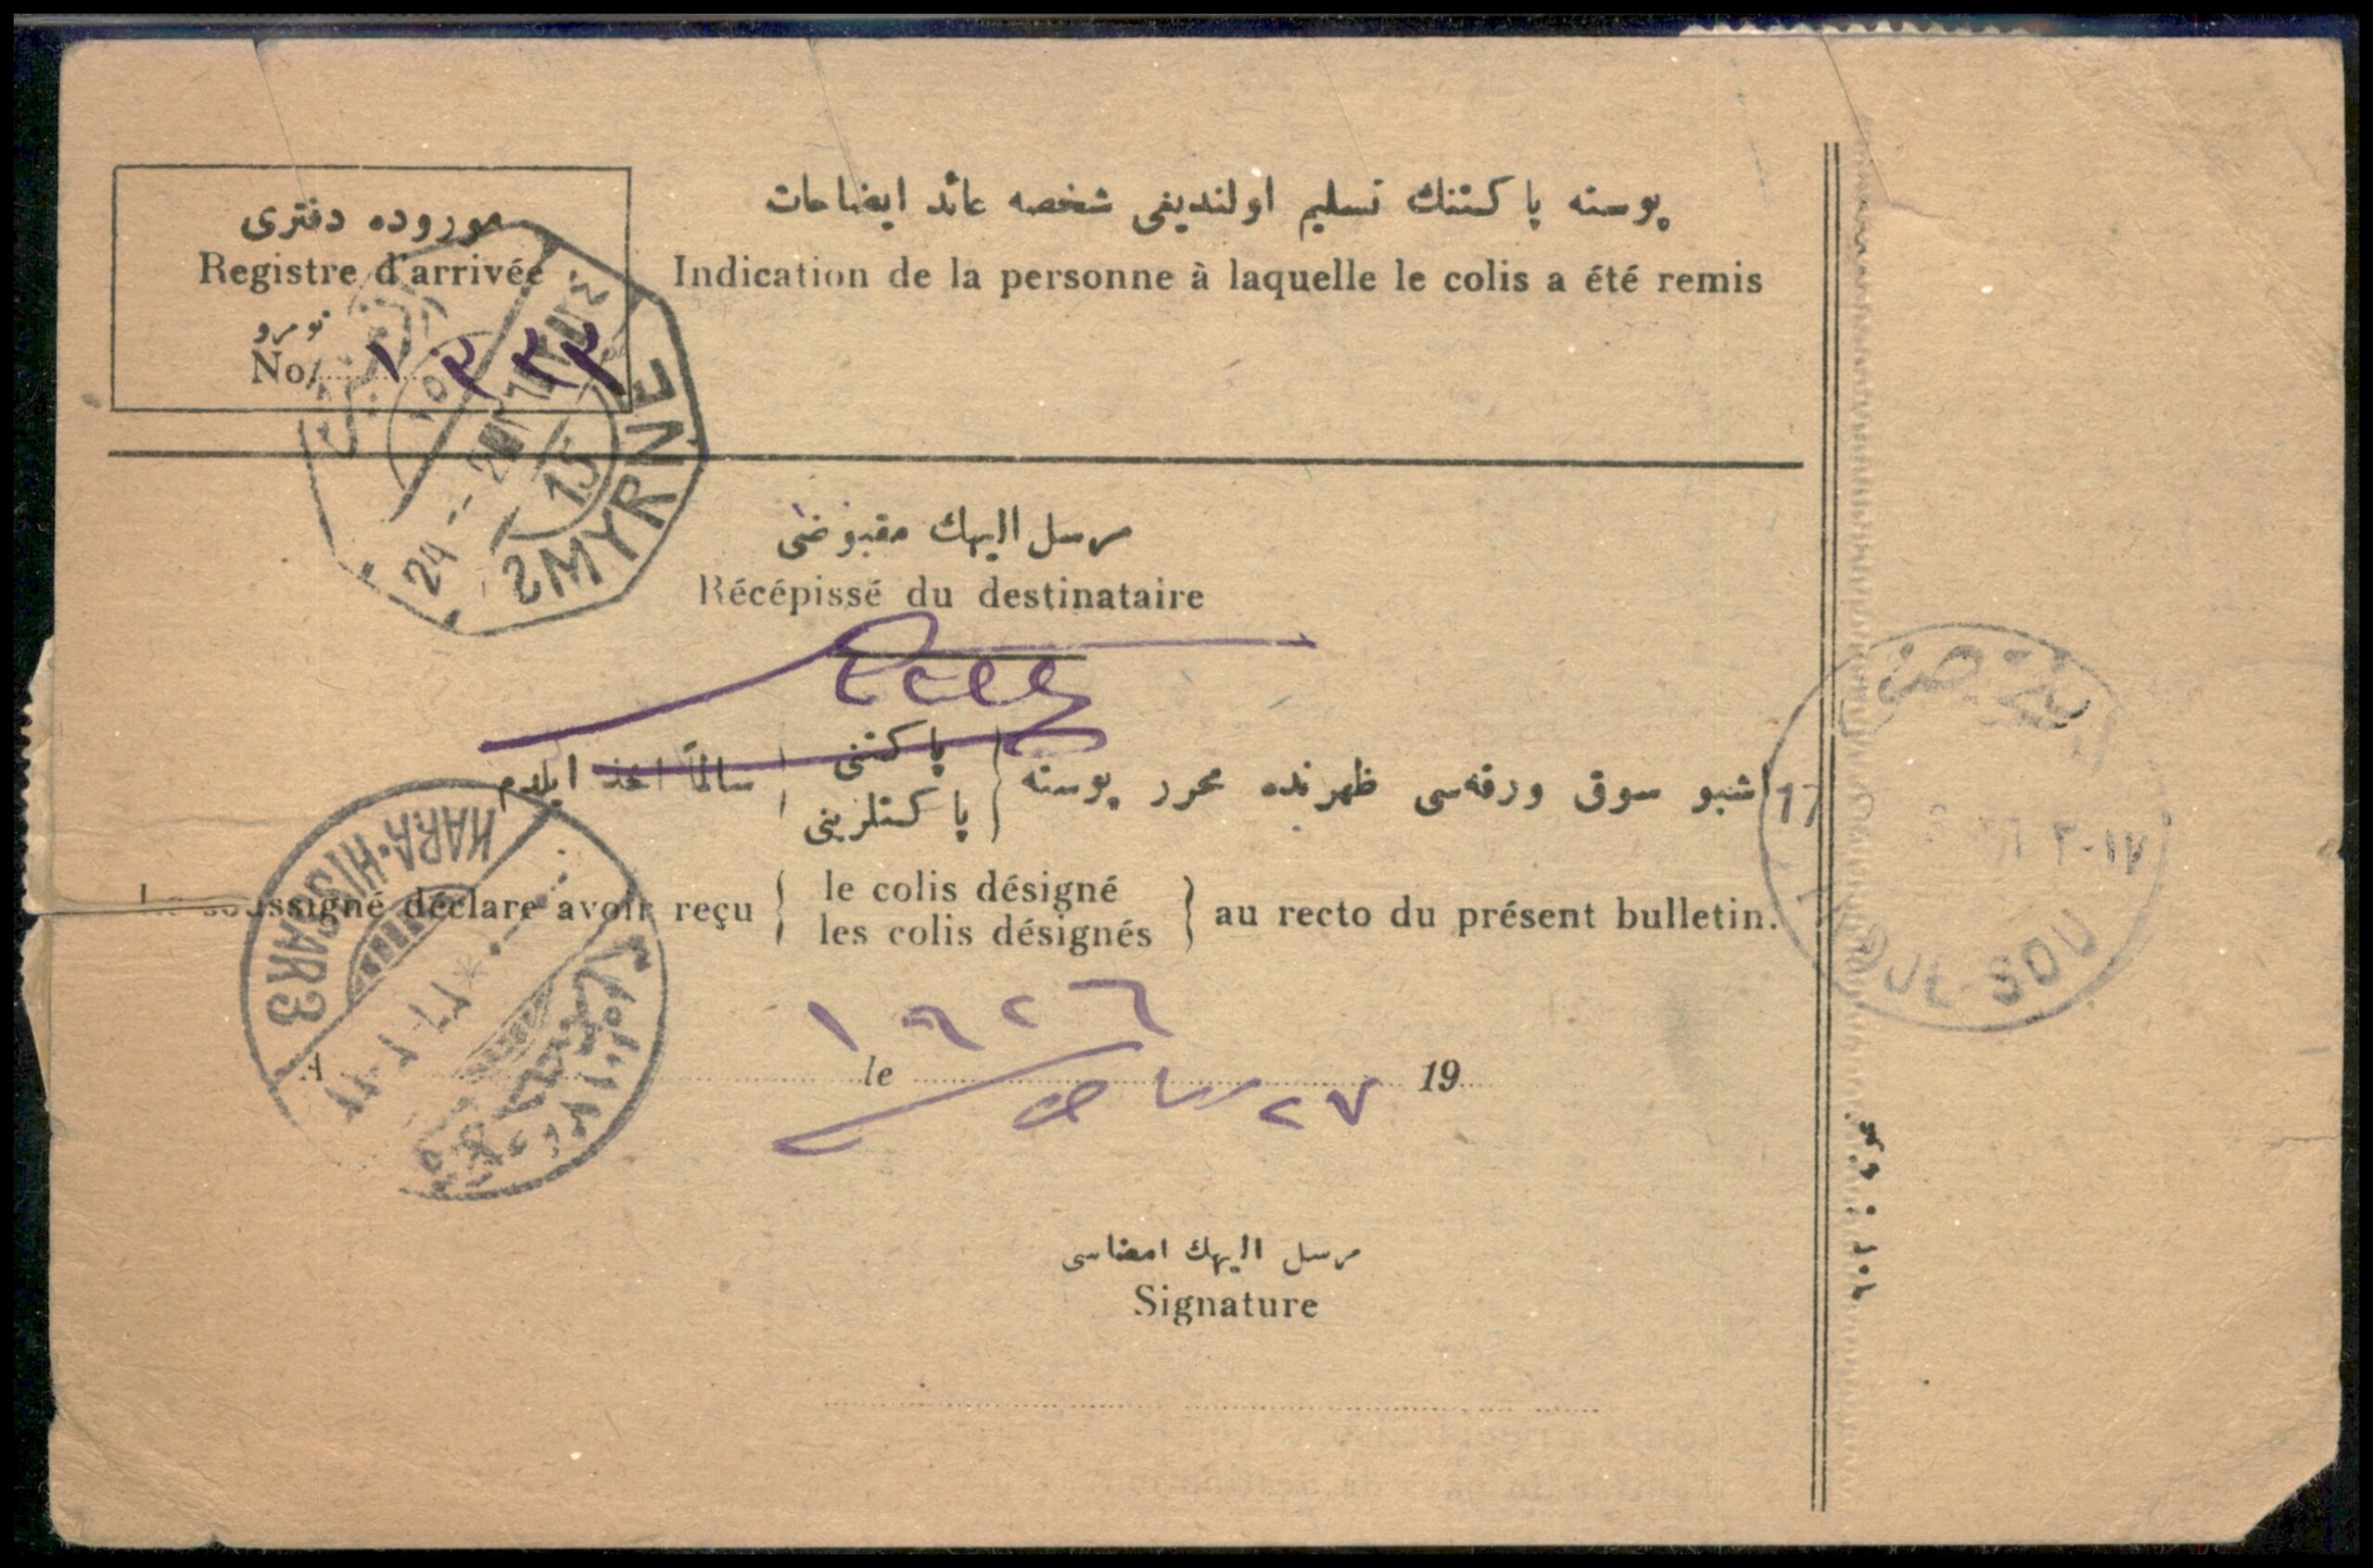 موروده دفتری
Registre d'arrivée
نومرو
No. ١٣٣٣
پوسته پاكتنك تسليم اولنديغی شخصه عائد ايضاحات
Indication de la personne à laquelle le colis a été remis
SMYRNE
24 -- 2
15
مرسل اليهك مقبوضی
Récépissé du destinataire
اشبو سوق ورقه‌سی ظهرنده محرر پوسته { پاكتنی
پاكتلرينی } سالماً اخذ ايلدم
Le soussigné déclare avoir reçu { le colis désigné
les colis désignés } au recto du présent bulletin.
KARA-HISSAR 3
SOU
١٩٢٦
A le 19
٢٧
مرسل اليهك امضاسی
Signature